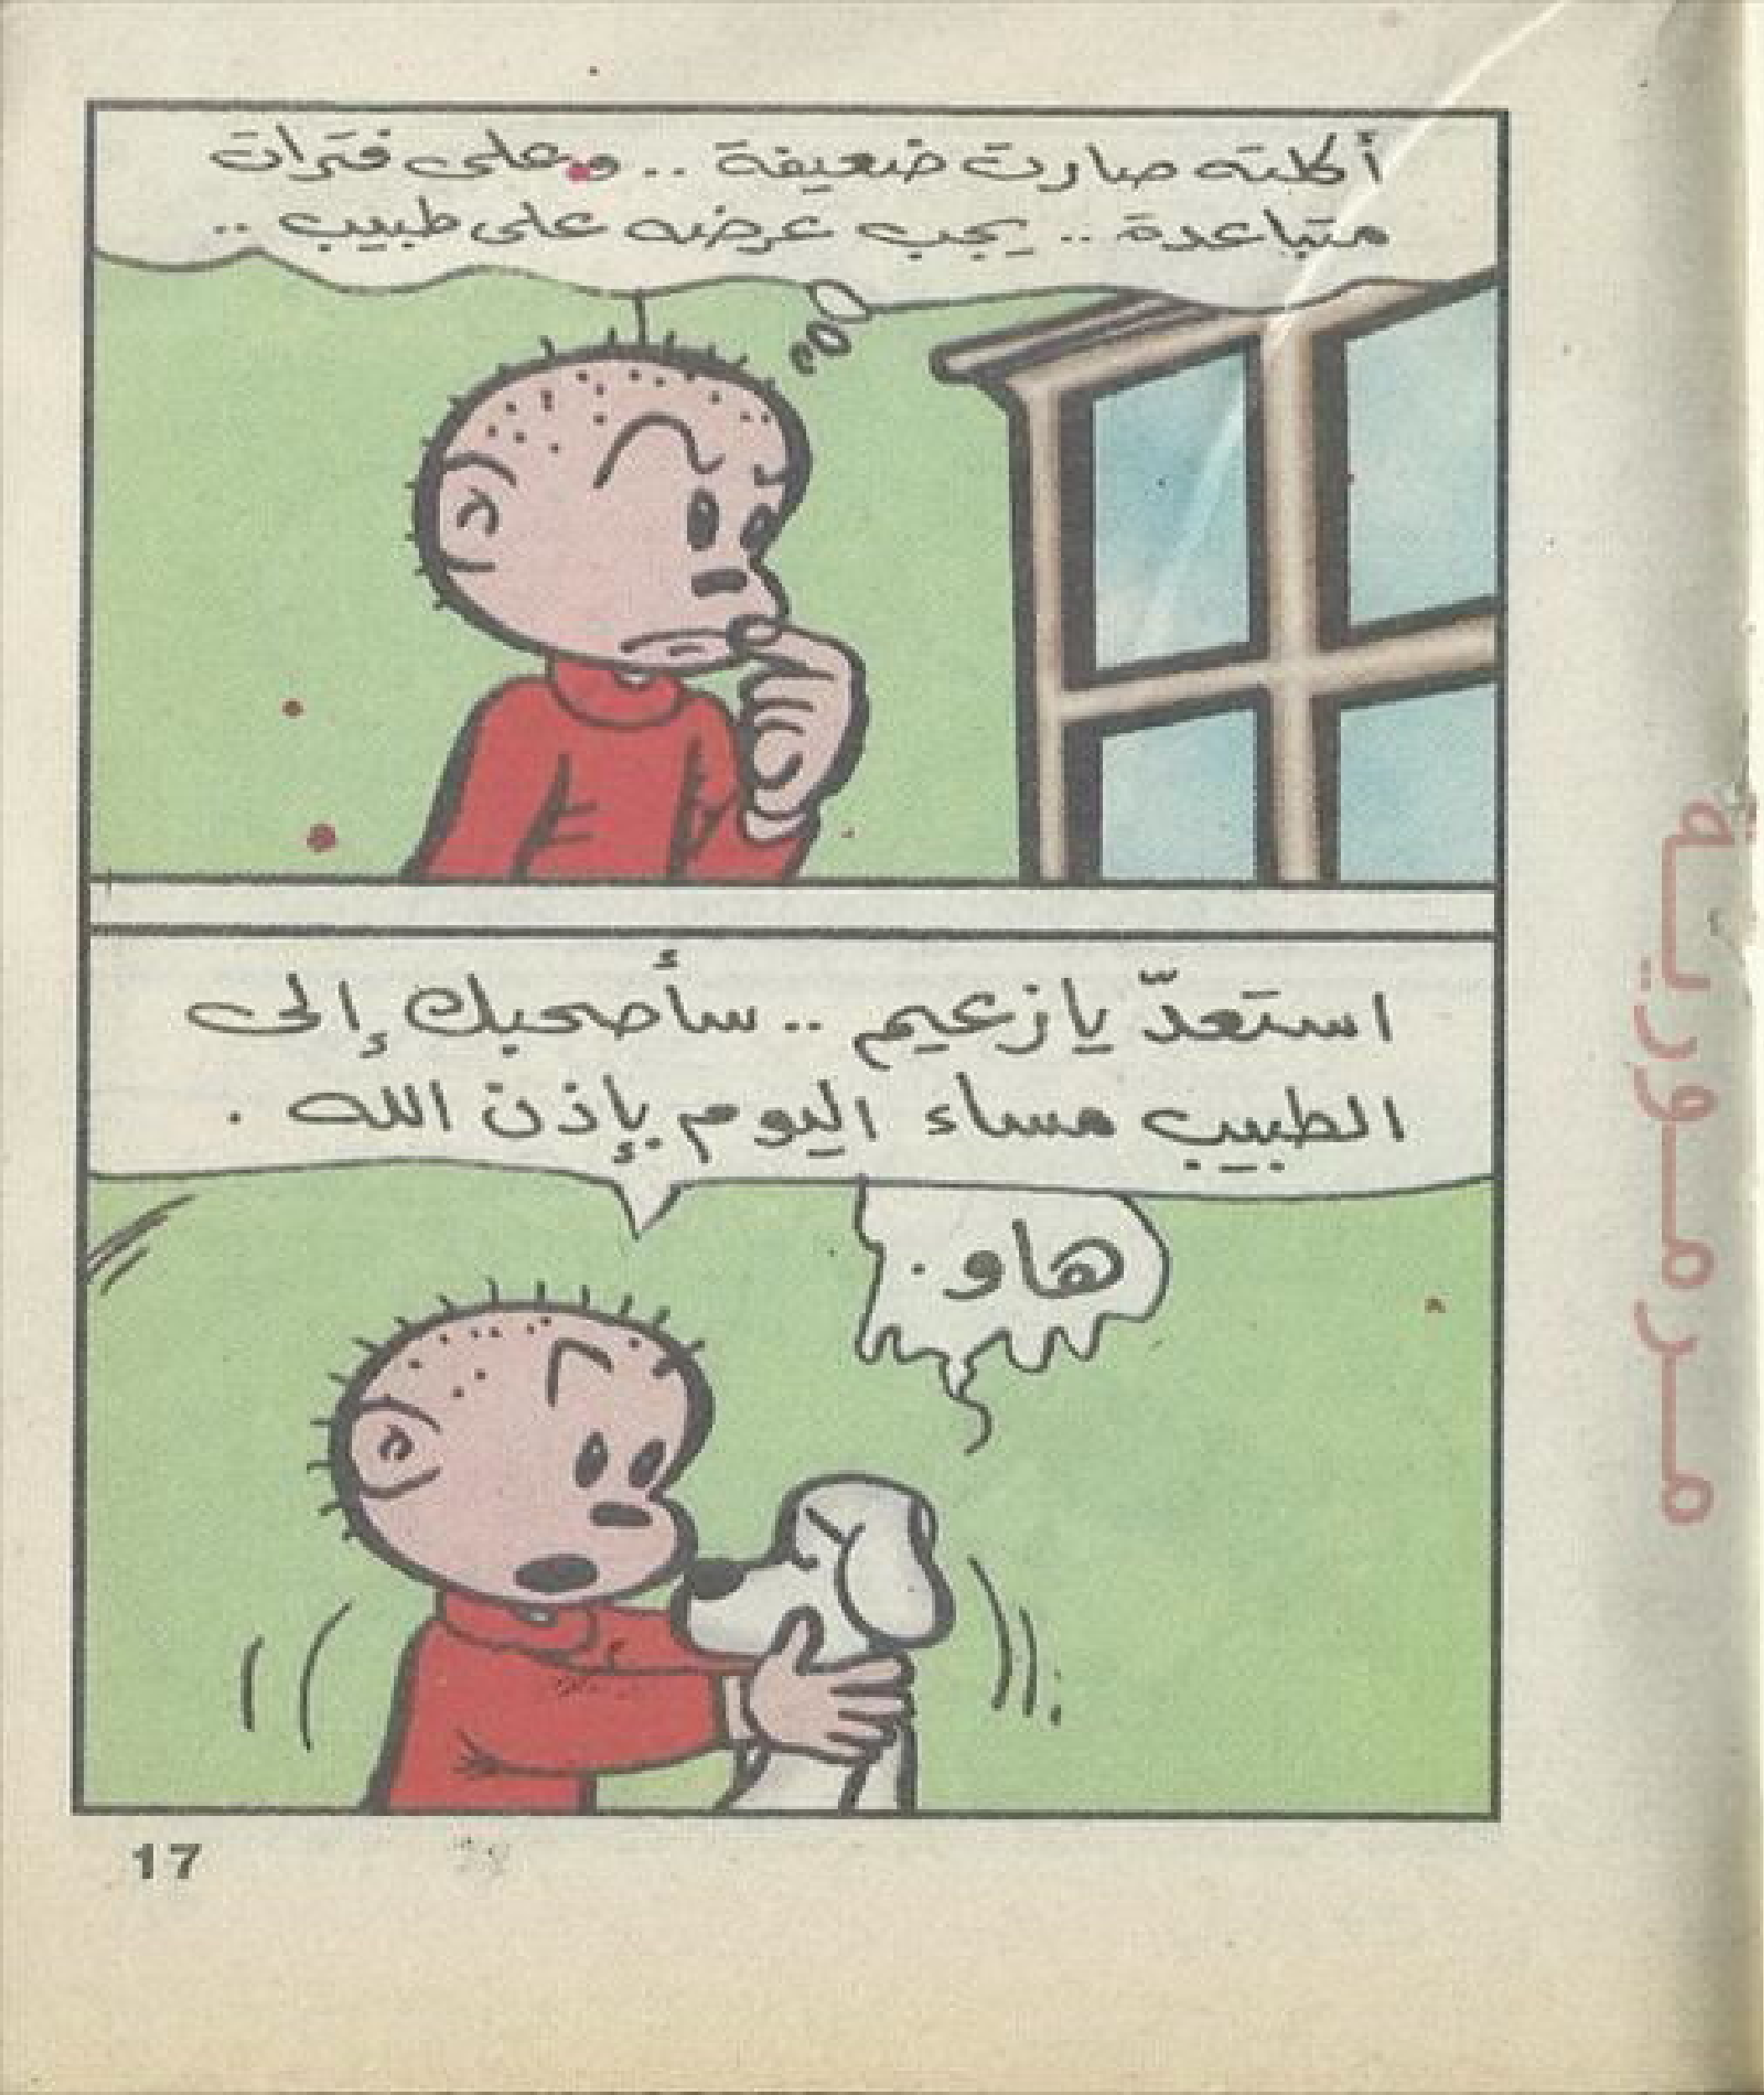 أكلته صارت ضعيفة .. وعلى فترات
متباعدة .. يجب عرضه على طبيب ..
استعدّ يا زعيم .. سأصحبك إلى
الطبيب مساء اليوم بإذن الله .
هاو .
17
مـرمـوريـة